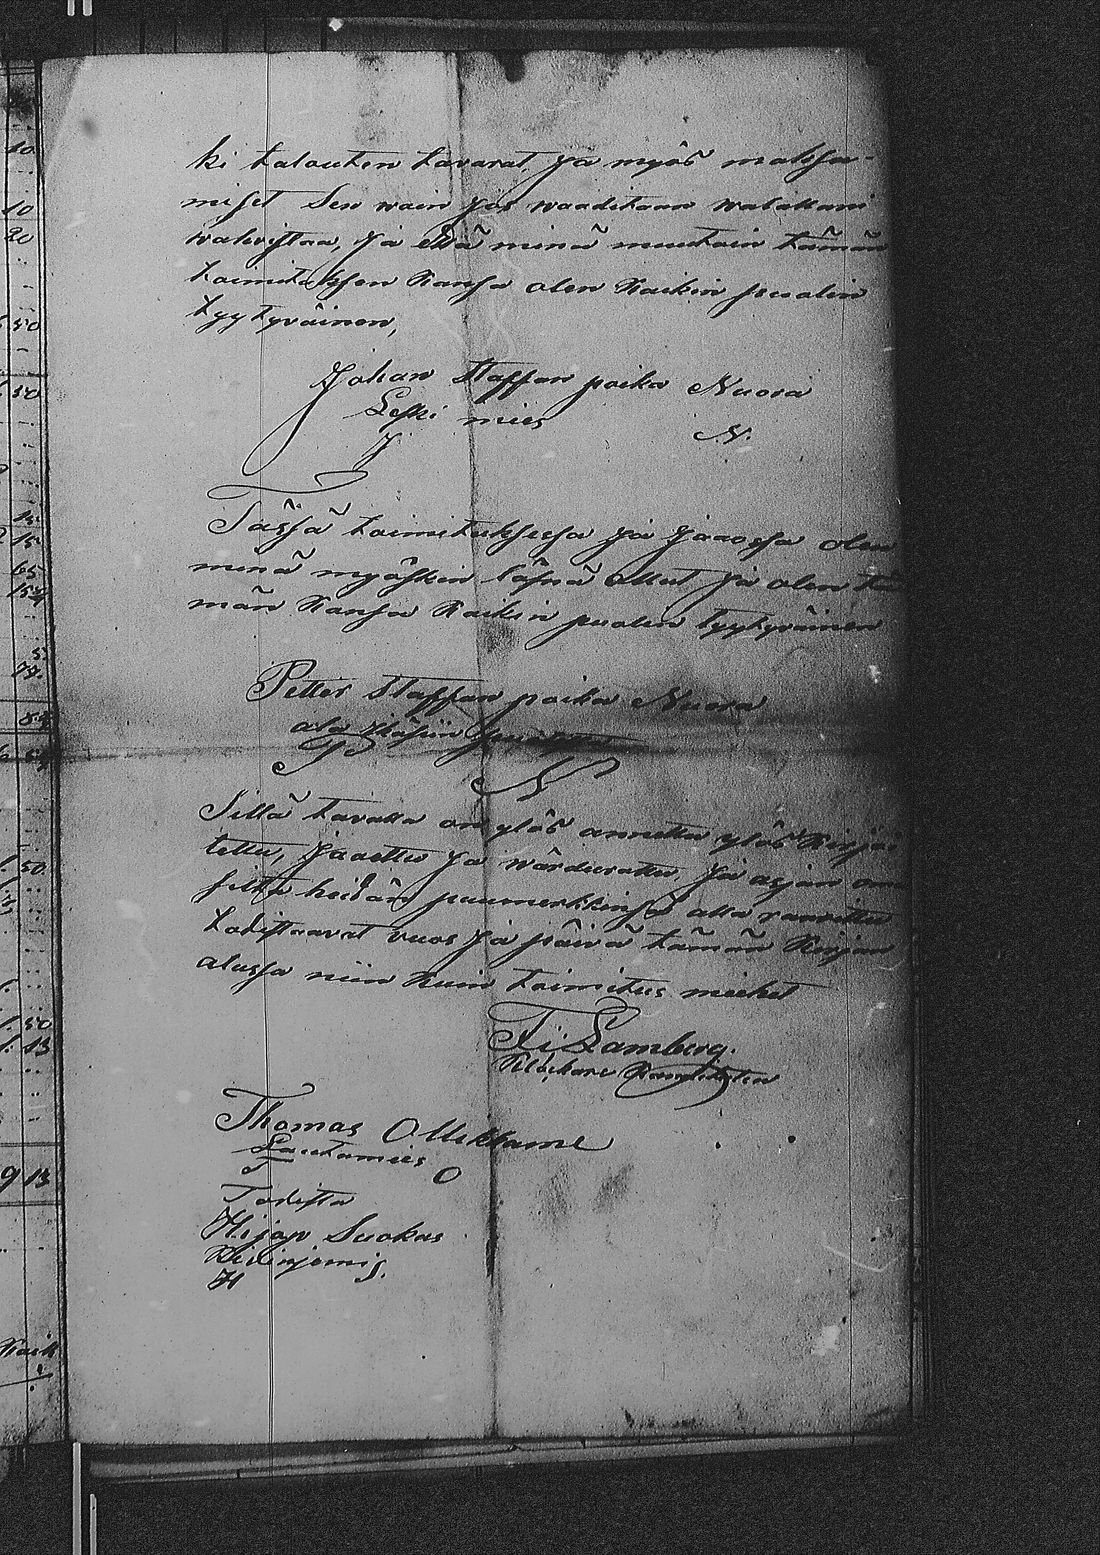 ki talouten tavarat, ja myös maksa-
miset Sen wain jos waaditaan walallani
wahvistaa, ja että minä muutoin tämän
toimituksen Kansa olen Kaikin puolin
tyytyväinen,
Johan Staffan poika Nuora
Leski mies
J N.
Tässä toimituksessa ja jaaossa olen
minä myöskin läsnä ollut ja olen tä
män Kansa Kaikin puolin tyytyväinen
Petter Staffan poika Nuora
P N
Sillä tavalla on ylös annettu ylös Kirjoi
tettu, jaettu ja wärderattu, ja asjan
heidän puumerkkinsä alla
todistaavat vuos ja päivä tämän Kirjan
alussa niin Kuin toimitus miehet
Lamberg.
Thomas Ollikkame
Lautamies
T O
Todista
Suokas
H S.
10
10
20
50
50
15
15
65
50
50
13
9 13
Kaik